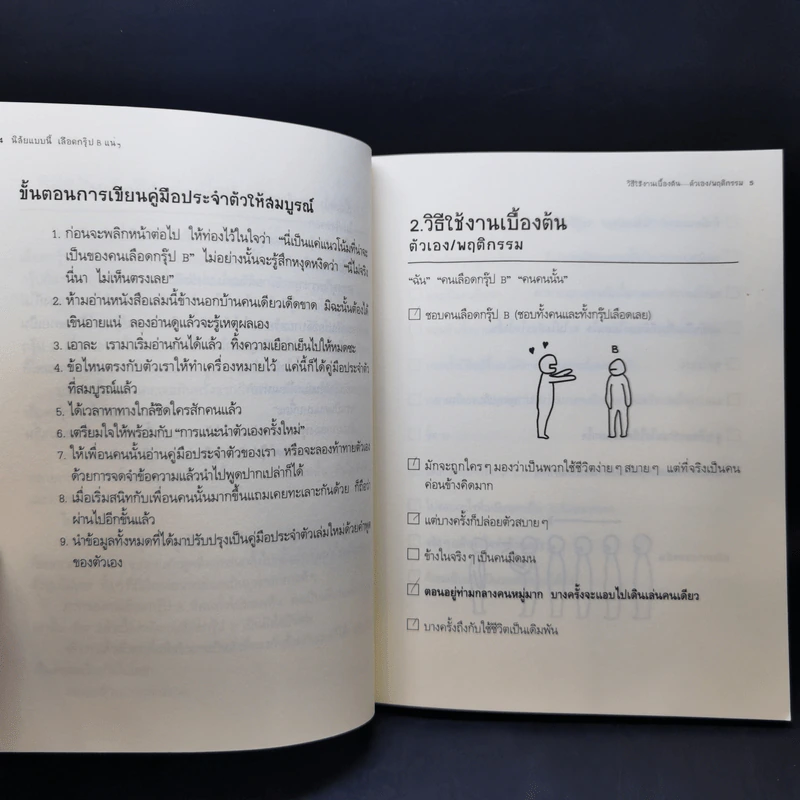 4 นิสัยแบบนี้ เลือดกรุ๊ป B แน่ๆ
ขั้นตอนการเขียนคู่มือประจำตัวให้สมบูรณ์
1. ก่อนจะพลิกหน้าต่อไป ให้ท่องไว้ในใจว่า “นี่เป็นแค่แนวโน้มที่น่าจะ
เป็นของคนเลือดกรุ๊ป B” ไม่อย่างนั้นจะรู้สึกหงุดหงิดว่า “นี่ไม่จริง
นี่นา ไม่เห็นตรงเลย”
2. ห้ามอ่านหนังสือเล่มนี้ข้างนอกบ้านคนเดียวเด็ดขาด มิฉะนั้นต้องได้
เขินอายแน่ ลองอ่านดูแล้วจะรู้เหตุผลเอง
3. เอาละ เรามาเริ่มอ่านกันได้แล้ว ทิ้งความเยือกเย็นไปให้หมดซะ
4. ข้อไหนตรงกับตัวเราให้ทำเครื่องหมายไว้ แค่นี้ก็ได้คู่มือประจำตัว
ที่สมบูรณ์แล้ว
5. ได้เวลาหาทางใกล้ชิดใครสักคนแล้ว
6. เตรียมใจให้พร้อมกับ “การแนะนำตัวเองครั้งใหม่”
7. ให้เพื่อนคนนั้นอ่านคู่มือประจำตัวของเรา หรือจะลองท้าทายตัวเอง
ด้วยการจดจำข้อความแล้วนำไปพูดปากเปล่าก็ได้
8. เมื่อเริ่มสนิทกับเพื่อนคนนั้นมากขึ้นแถมเคยทะเลาะกันด้วย ก็ถือว่า
ผ่านไปอีกขั้นแล้ว
9. นำข้อมูลทั้งหมดที่ได้มาปรับปรุงเป็นคู่มือประจำตัวเล่มใหม่ด้วย
ของตัวเอง
วิธีใช้งานเบื้องต้น—ตัวเอง/พฤติกรรม 5
2.วิธีใช้งานเบื้องต้น
ตัวเอง/พฤติกรรม
“ฉัน” “คนเลือดกรุ๊ป B” “คนคนนั้น”
ชอบคนเลือดกรุ๊ป B (ชอบทั้งคนและทั้งกรุ๊ปเลือดเลย)
B
มักจะถูกใครๆ มองว่าเป็นพวกใช้ชีวิตง่ายๆ สบายๆ แต่ที่จริงเป็นคน
ค่อนข้างคิดมาก
แต่บางครั้งก็ปล่อยตัวสบายๆ
ข้างในจริงๆ เป็นคนมืดมน
ตอนอยู่ท่ามกลางคนหมู่มาก บางครั้งจะแอบไปเดินเล่นคนเดียว
บางครั้งถึงกับใช้ชีวิตเป็นเดิมพัน